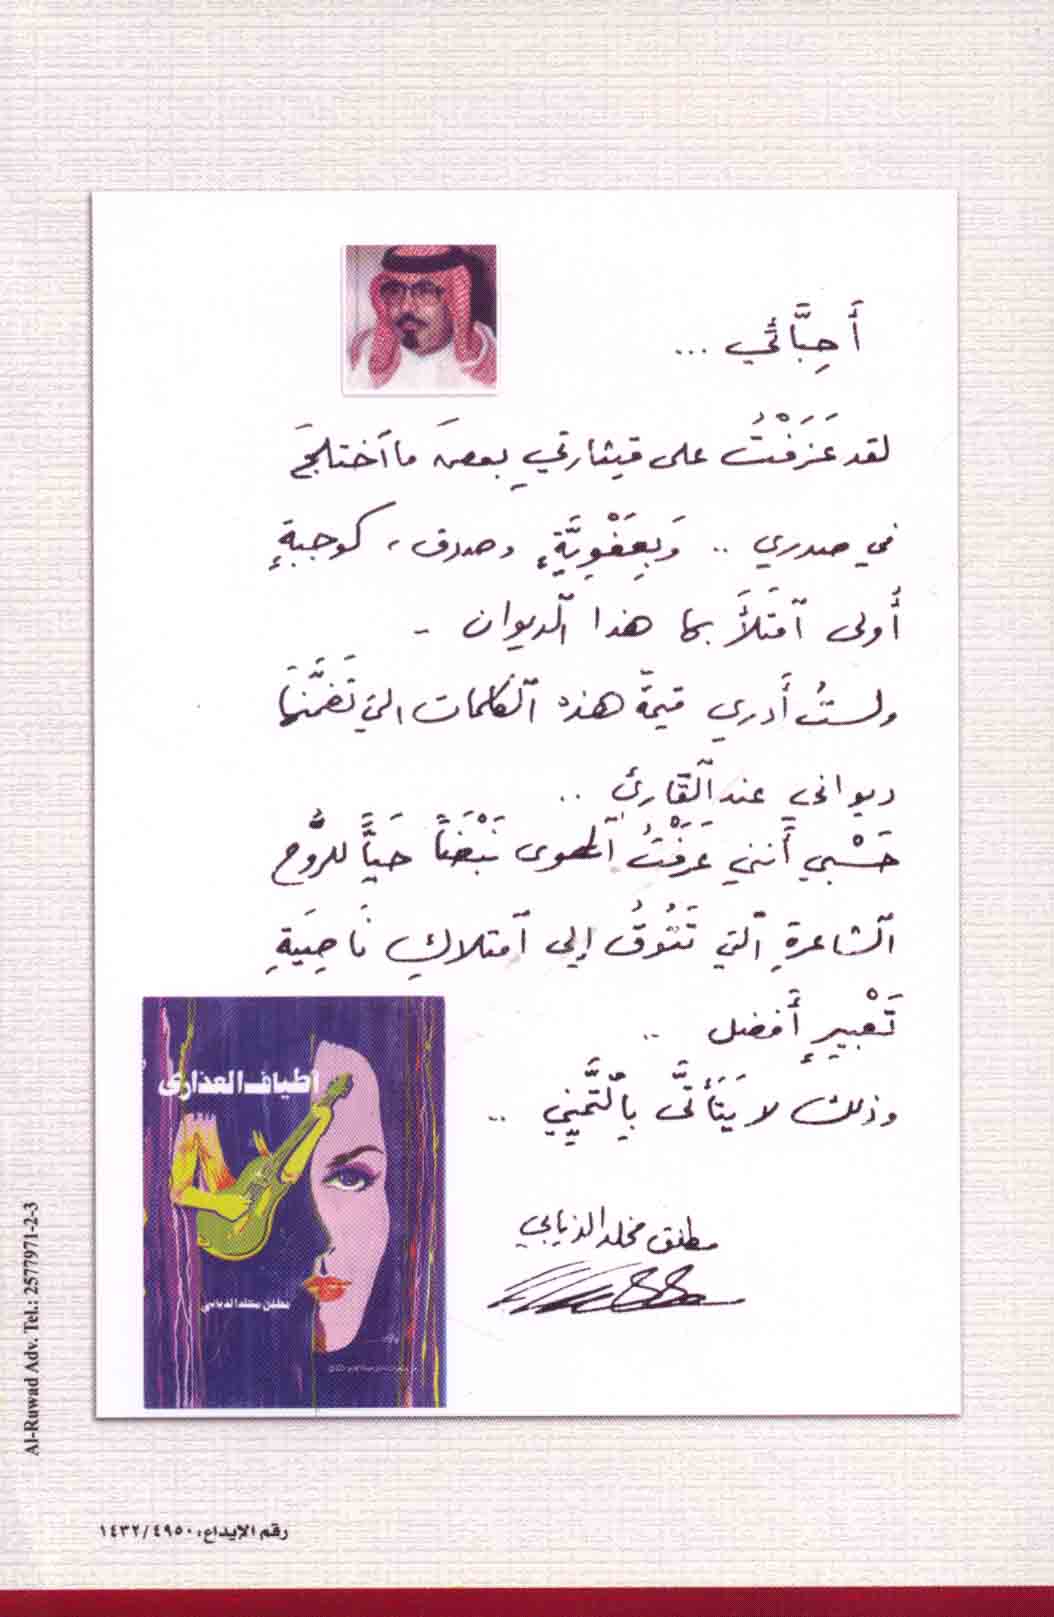 أَحِبَّائي ...
لقد عَزَفْتُ على قيثارتي بعضَ ما ٱختلجَ
في صدري .. وَبِعَفْوِيَّةٍ وصدق ، كوجبةٍ
أُولى ٱمْتَلأَ بها هذا ٱلديوان ..
ولستُ أَدري قيمةَ هذه ٱلكلمات التي تَضَمَّنَها
ديواني عند ٱلقارئِ ..
حَسْبي أَنني عَرَفْتُ ٱلهوى نَبْضَاً حَيَّاً للرُّوحِ
ٱلشاعرةِ ٱلتي تَتُوقُ إلى ٱمتلاكِ نَاصِيَةِ
تَعْبيرٍ أَفضل ..
وذلك لا يَتَأَتَّى بِٱلتَّمَنِّي ..
مطلق مخلد الذيابي
أطياف العذارى
مطلق مخلد الذيابي
Al-Ruwad Adv. Tel.: 2577971-2-3
رقم الإيداع: ١٤٣٢/٤٩٥٠